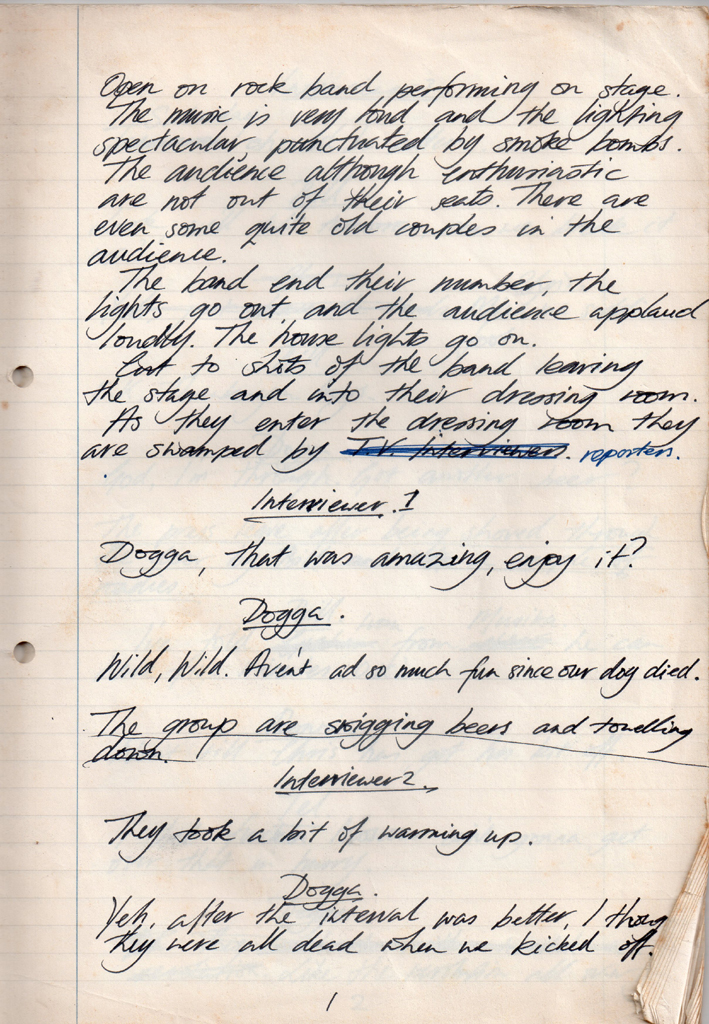 Open on rock band performing on stage.
The music is very loud and the lighting
spectacular punctuated by smoke bombs.
The audience although enthusiastic
are not out of their seats. There are
even some quite old couples in the
audience.
The band end their number, the
lights go out and the audience applaud
loudly. The house lights go on.
Cut to shots of the band leaving
the stage and into their dressing room.
As they enter the dressing room they
are swamped by T.V. Interviewers. reporters.
Interviewer. 1
Dogga, that was amazing, enjoy it?
Dogga.
Wild, Wild. Aven't ad so much fun since our dog died.
The group are swigging beers and towelling
down.
Interviewer 2.
They took a bit of warming up.
Dogga.
Yeh, after the interval was better, I thoug
they were all dead when we kicked off.
1